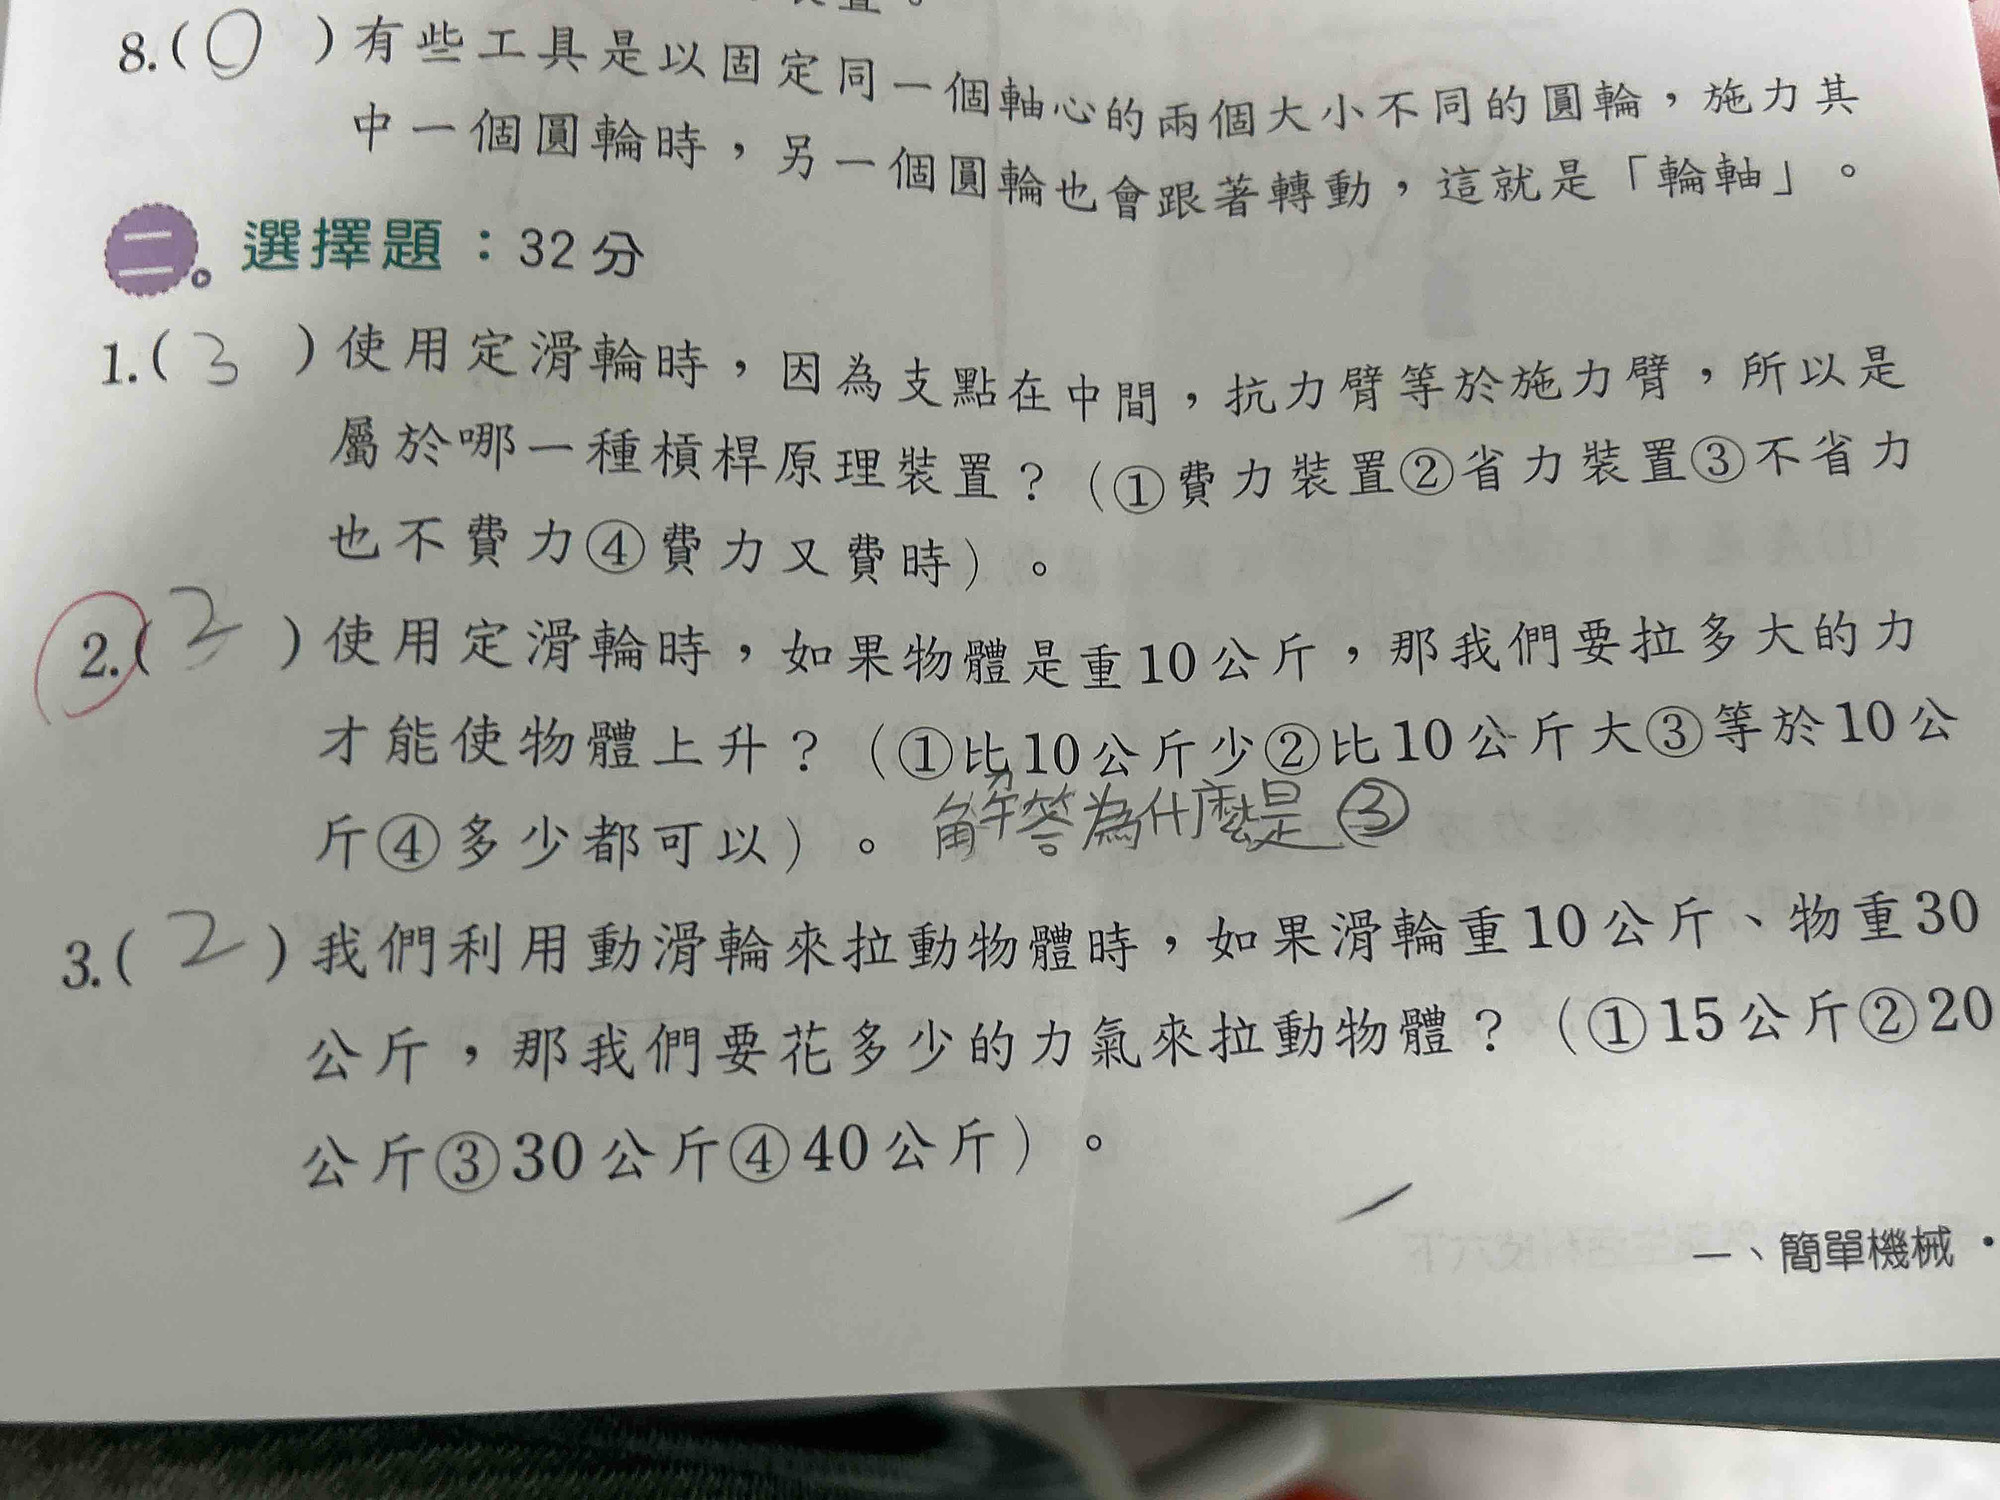 8.(○)有些工具是以固定同一個軸心的兩個大小不同的圓輪，施力其
中一個圓輪時，另一個圓輪也會跟著轉動，這就是「輪軸」。
二。選擇題：32分
1.(3)使用定滑輪時，因為支點在中間，抗力臂等於施力臂，所以是
屬於哪一種槓桿原理裝置？（①費力裝置②省力裝置③不省力
也不費力④費力又費時）。
2.()使用定滑輪時，如果物體是重10公斤，那我們要拉多大的力
才能使物體上升？（①比10公斤少②比10公斤大③等於10公
斤④多少都可以）。解答為什麼是③
3.(2)我們利用動滑輪來拉動物體時，如果滑輪重10公斤、物重30
公斤，那我們要花多少的力氣來拉動物體？（①15公斤②20
公斤③30公斤④40公斤）。
一、簡單機械·